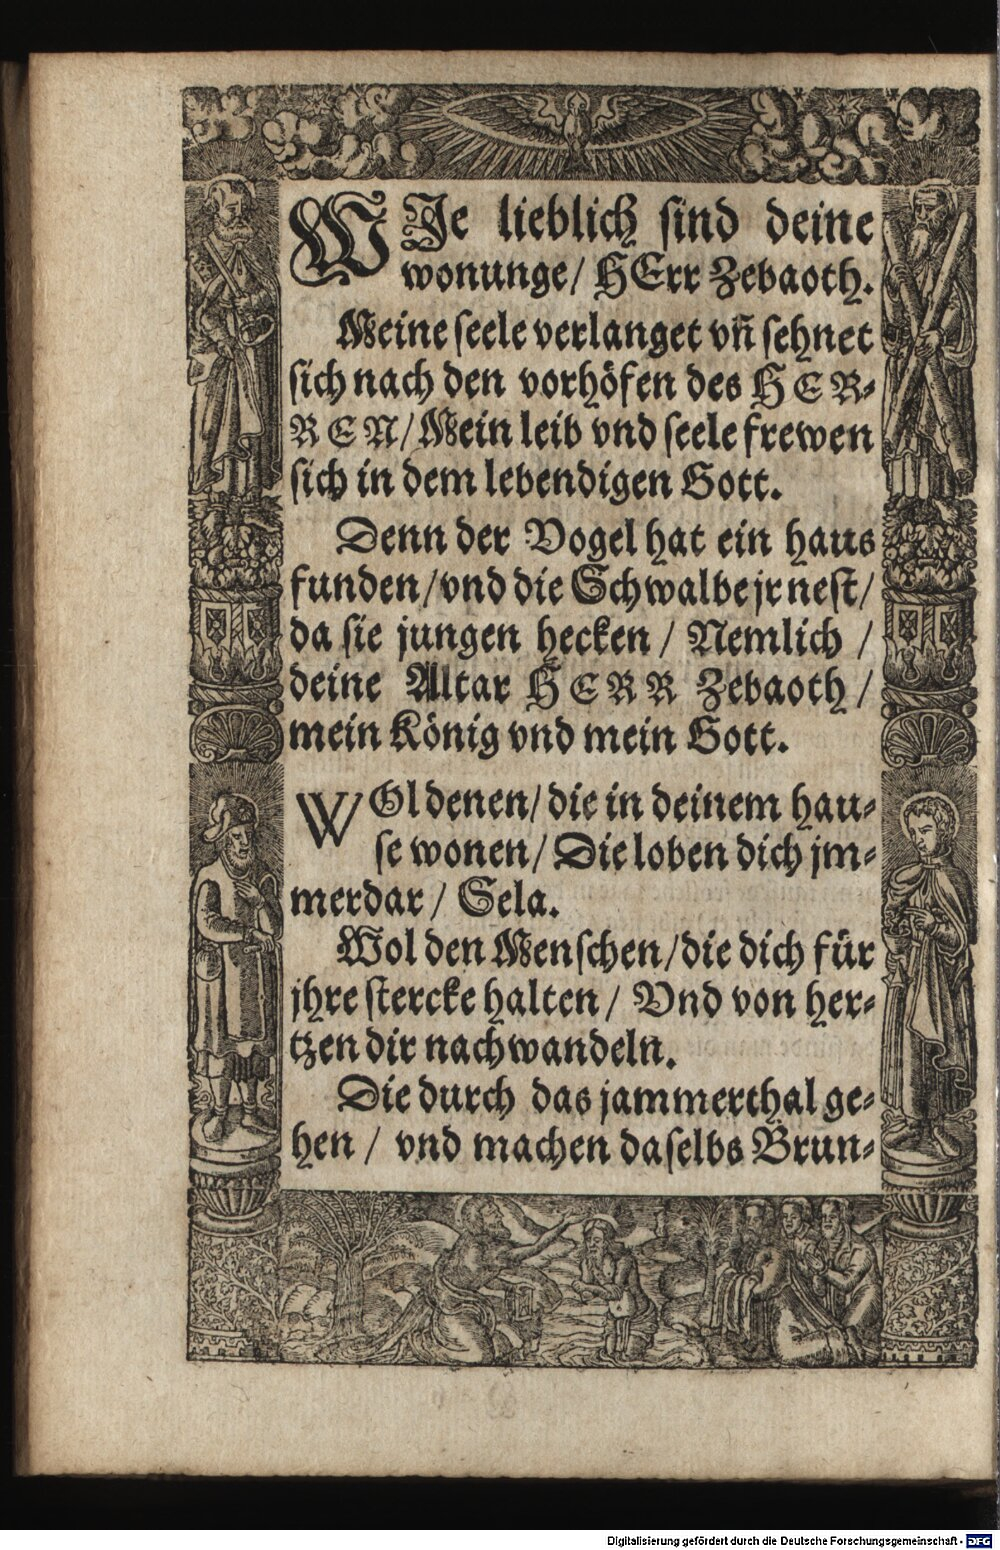 WJe lieblich sind deine
wonunge/ HErr Zebaoth.
Meine seele verlanget vñ sehnet
sich nach den vorhöfen des HER-
REN/ Mein leib vnd seele frewen
sich in dem lebendigen Gott.
Denn der Vogel hat ein haus
funden/ vnd die Schwalbe jr nest/
da sie jungen hecken / Nemlich /
deine Altar HERR Zebaoth /
mein König vnd mein Gott.
WOl denen/ die in deinem hau-
se wonen/ Die loben dich jm-
merdar / Sela.
Wol den Menschen/ die dich für
jhre stercke halten / Vnd von her-
tzen dir nachwandeln.
Die durch das jammerthal ge-
hen / vnd machen daselbs Brun-
Digitalisierung gefördert durch die Deutsche Forschungsgemeinschaft - DFG